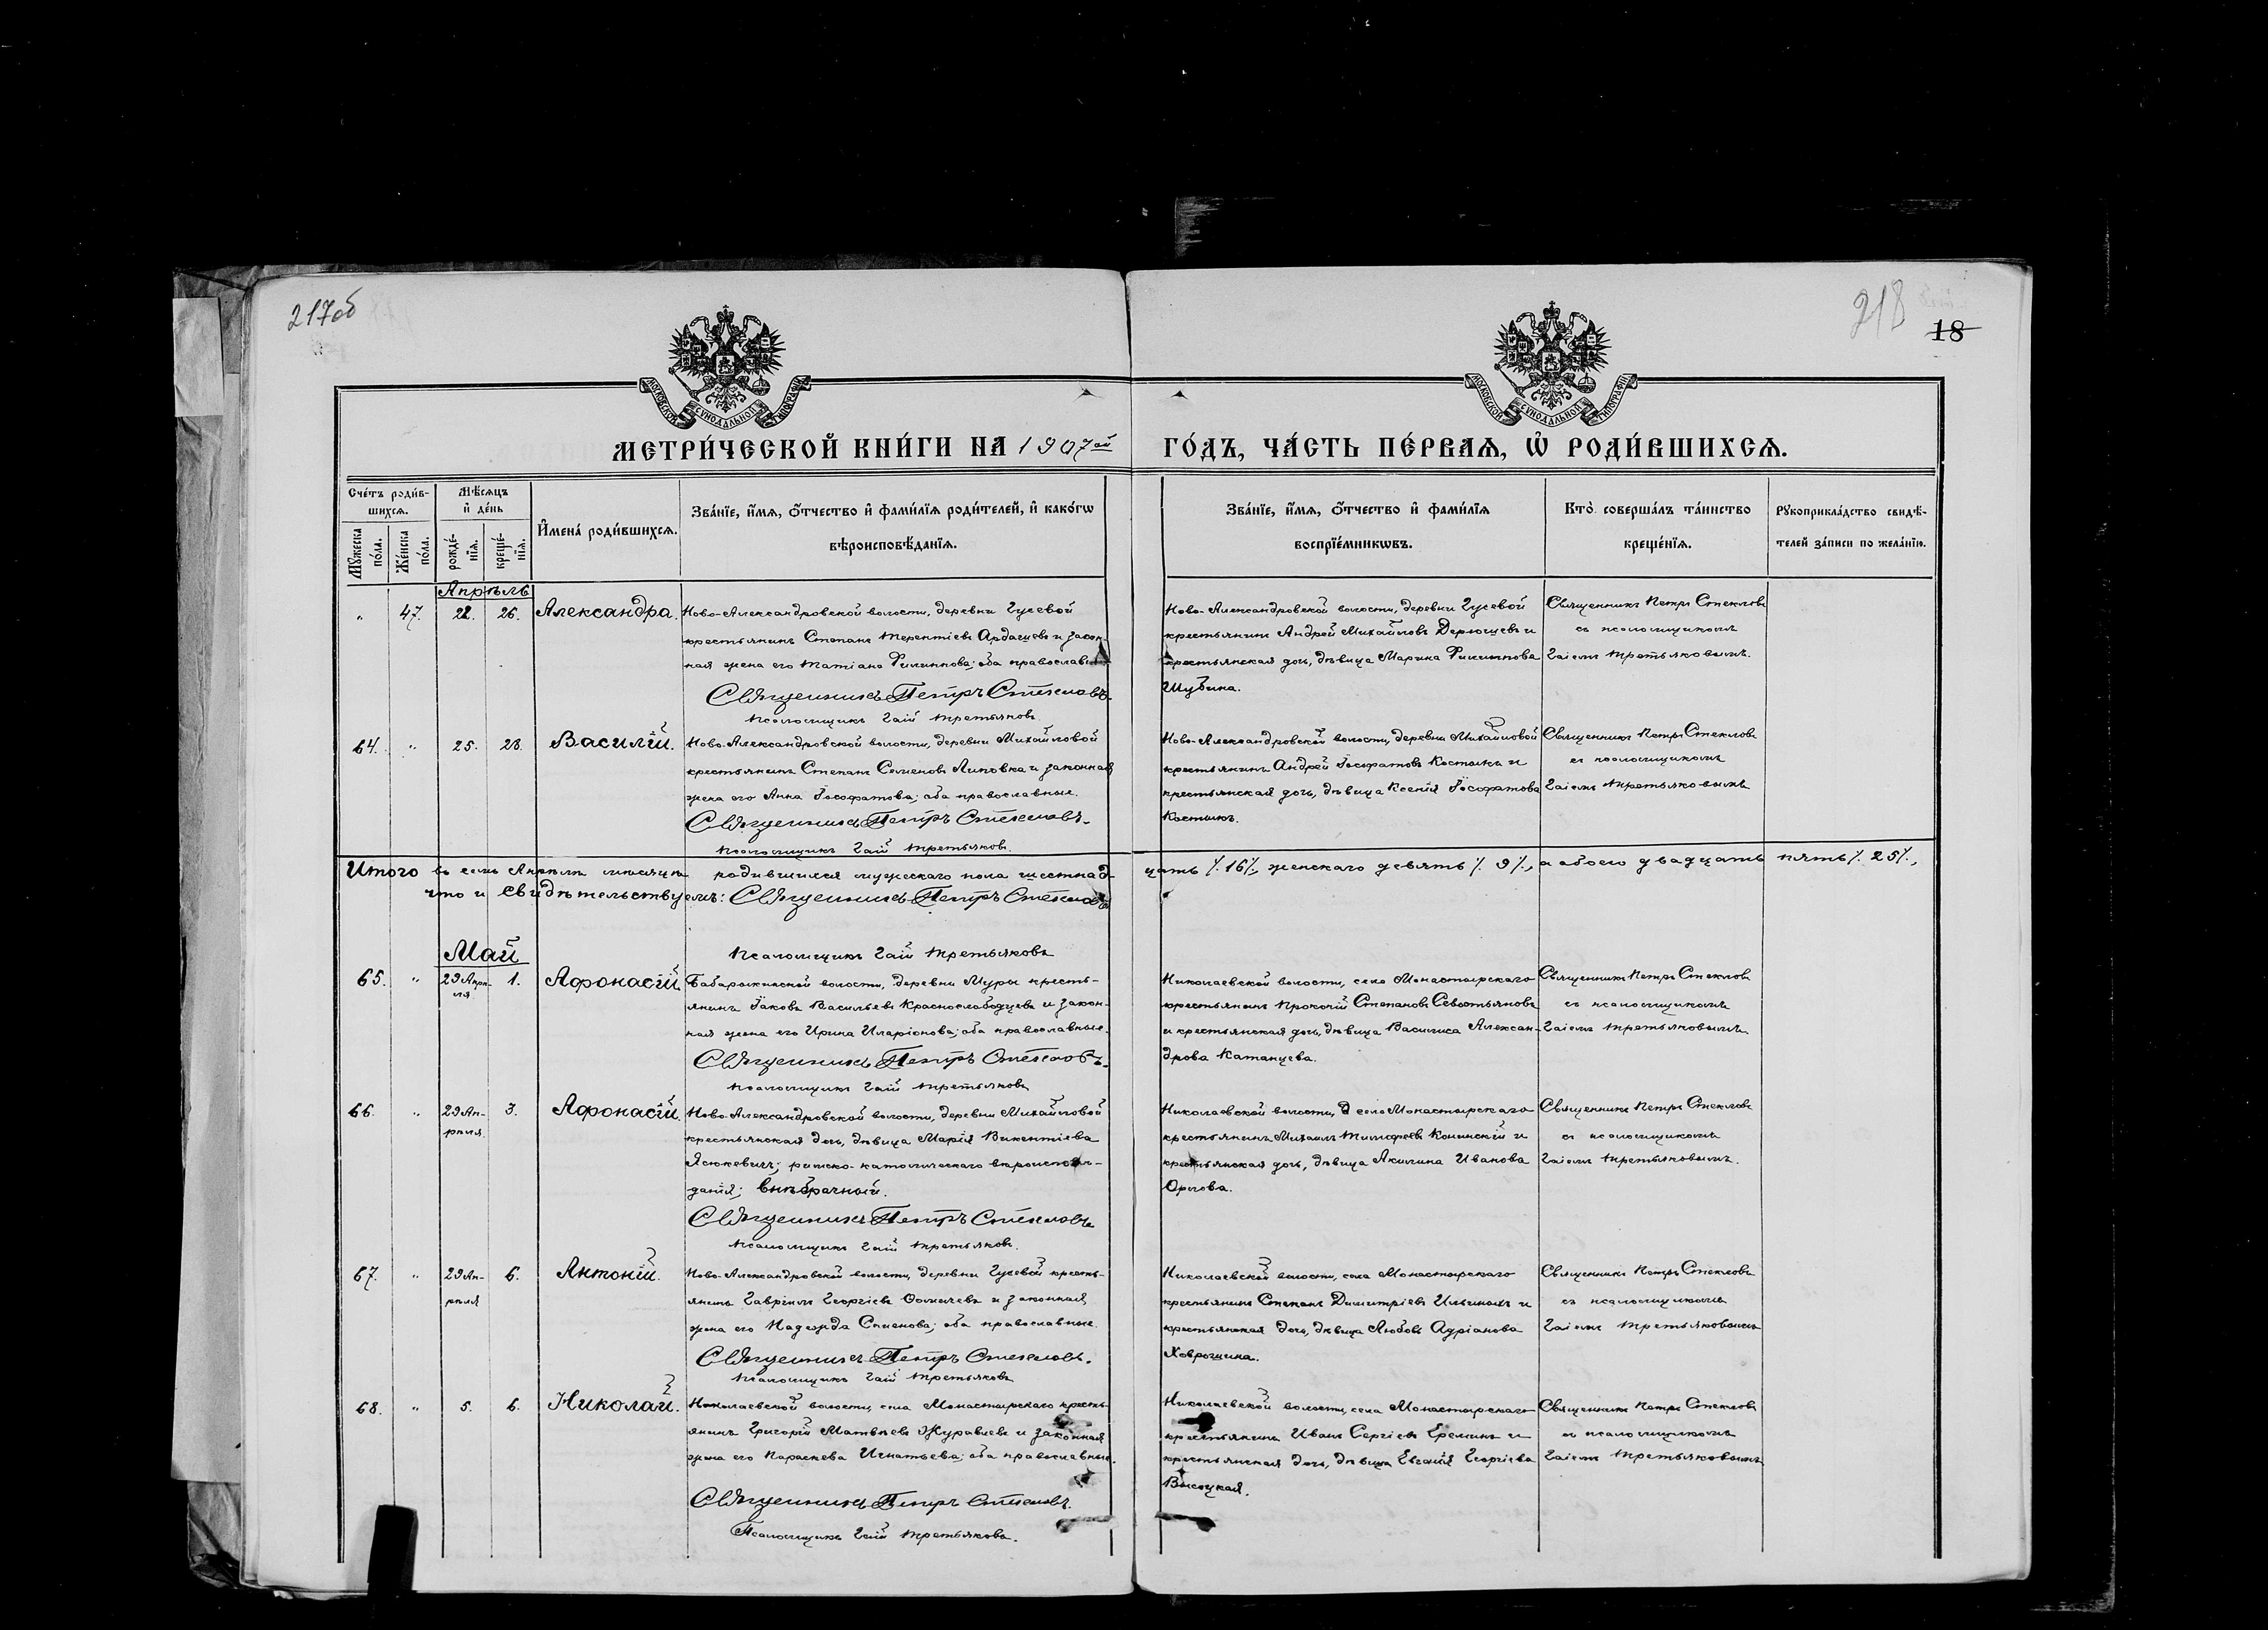 217об
218
18
МОСКОВСКОЙ СУНОДАЛЬНОЙ ТИПОГРАФІИ
МОСКОВСКОЙ СУНОДАЛЬНОЙ ТИПОГРАФІИ
МЕТРИ́ЧЕСКОЙ КНИ́ГИ НА 1907ой ГО́ДЪ, ЧА́СТЬ ПЕ́РВАЯ, Ѡ҆ РОДИ́ВШИХСЯ.
Сче́тъ роди́в-
шихся.
Мꙋжеска по́ла.
Же́нска по́ла.
Мѣ́сяцъ
и҆ де́нь
рожде́-
нїя.
креще́-
нїя.
И҆мена̀ роди́вшихся.
Зва́нїе, и҆́мя, ѻ҆́тчество и҆ фами́лїя роди́телей, и҆ како́гѡ
вѣроисповѣ́данїя.
Зва́нїе, и҆́мя, ѻ҆́тчество и҆ фами́лїя
воспрїе́мникѡвъ.
Кто̀ соверша́лъ та́инство
креще́нїя.
Рꙋкоприкла́дство свидѣ́-
телей за́писи по жела́нїю.
Апрѣль
" 47. 22. 26. Александра.
Ново-Александровской волости, деревни Гусевой
крестьянинъ Степанъ Терентіевъ Ардашевъ и закон-
ная жена его Татіана Филиппова; оба православные
Священникъ Петръ Стекловъ.
Псаломщикъ Гаій Третьяковъ.
Ново-Александровской волости, деревни Гусевой
крестьянинъ Андрей Михайловъ и
крестьянская дочь, дѣвица Марина Филиппова
Шубина.
Священникъ Петръ Стекловъ
съ псаломщикомъ
Гаіемъ Третьяковымъ.
64. " 25. 28. Василій.
Ново-Александровской волости, деревни Михайловой
крестьянинъ Степанъ Семеновъ Липовка и законная
жена его Анна Іосафатова; оба православные.
Священникъ Петръ Стекловъ.
Псаломщикъ Гаій Третьяковъ.
Ново-Александровской волости, деревни Михайловой
крестьянинъ Андрей Іосафатовъ Костюкъ и
крестьянская дочь, дѣвица Ксенія Іосафатова
Костюкъ.
Священникъ Петръ Стекловъ
съ псаломщикомъ
Гаіемъ Третьяковымъ
Итого въ семъ Апрѣлѣ мѣсяцѣ родившихся мужескаго пола шестнад- цать /.16/., женскаго девять /.9/., а обоего двадцать пять /.25/.,
что и свидѣтельствуемъ: Священникъ Петръ Стекловъ
Псаломщикъ Гаій Третьяковъ
Май
65. " 29 Апрѣ-
ля 1. Афонасій
Бабарыкинской волости, деревни Муры кресть-
янинъ Іаковъ Васильевъ Краснослабодцевъ и закон-
ная жена его Ирина Иларіонова; оба православные.
Священникъ Петръ Стекловъ.
Псаломщикъ Гаій Третьяковъ
Николаевской волости, села Монастырскаго
крестьянинъ Прокопій Степановъ Севостьяновъ
и крестьянская дочь, дѣвица Василиса Алексан-
дрова Катанцева.
Священникъ Петръ Стекловъ
съ псаломщикомъ
Гаіемъ Третьяковымъ.
66. " 29 Ап-
рѣля. 3. Афонасій.
Ново-Александровской волости, деревни Михайловой
крестьянская дочь, дѣвица Марія Викентіева
Ясюкевичъ; римско-католическаго вѣроисповѣ-
данія; внѣбрачный.
Священникъ Петръ Стекловъ
Псаломщикъ Гаій Третьяковъ.
Николаевской волости, села Монастырскаго
крестьянинъ Михаилъ Тимофеевъ и
крестьянская дочь, дѣвица Акилина Иванова
Орлова.
Священникъ Петръ Стекловъ
съ псаломщикомъ
Гаіемъ Третьяковымъ.
67. " 29 Ап-
рѣля 6. Антоній.
Ново-Александровской волости, деревни Гусевой кресть-
янинъ Гавріилъ Георгіевъ Ѳомичевъ и законная
жена его Надежда Семенова; оба православные.
Священникъ Петръ Стекловъ.
Псаломщикъ Гаій Третьяковъ
Николаевской волости, села Монастырскаго
крестьянинъ Степанъ Димитріевъ Ильиныхъ и
крестьянская дочь, дѣвица Любовь Адріанова
Священникъ Петръ Стекловъ
съ псаломщикомъ
Гаіемъ Третьяковымъ
68. " 5. 6. Николай.
Николаевской волости, села Монастырскаго кресть-
янинъ Григорій Матвѣевъ Журавлевъ и законная
жена его Параскева Игнатьева; оба православные.
Священникъ Петръ Стекловъ.
Псаломщикъ Гаій Третьяковъ.
Николаевской волости, села Монастырскаго
крестьянинъ Иванъ Сергіевъ Ереминъ и
крестьянская дочь, дѣвица Евгенія Георгіева
Высоцкая.
Священникъ Петръ Стекловъ
съ псаломщикомъ
Гаіемъ Третьяковымъ